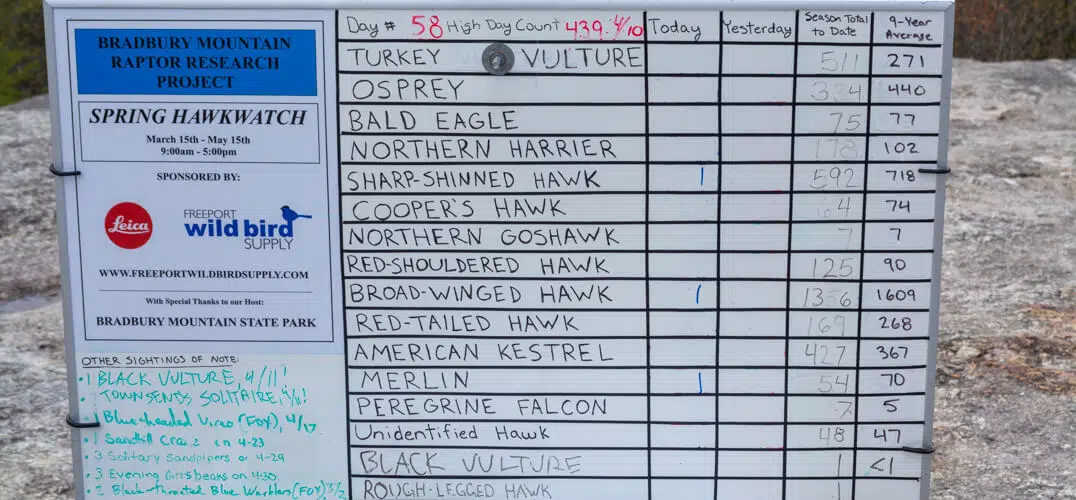 BRADBURY MOUNTAIN
RAPTOR RESEARCH
PROJECT
SPRING HAWKWATCH
March 15th - May 15th
9:00am - 5:00pm
SPONSORED BY:
Leica
FREEPORT
wild bird
SUPPLY
WWW.FREEPORTWILDBIRDSUPPLY.COM
With Special Thanks to our Host:
BRADBURY MOUNTAIN STATE PARK
OTHER SIGHTINGS OF NOTE:
• 1 BLACK VULTURE, 4/11!
• TOWNSENDS SOLITAIRE,
Blue-headed Vireo (FOY), 4/17
• 1 Sandhill on 4-23
• 3 Solitary Sandpipers on 4-29
• 3 Evening Grosbeaks on 4-30
• 2 Black-throated Blue Warblers (FOY)
Day # 58 High Day Count 439 4/10 Today Yesterday Season Total to Date 9-Year Average
TURKEY VULTURE 511 271
OSPREY 440
BALD EAGLE 75 77
NORTHERN HARRIER 178 102
SHARP-SHINNED HAWK 1 592 718
COOPER'S HAWK 74
NORTHERN GOSHAWK 7 7
RED-SHOULDERED HAWK 125 90
BROAD-WINGED HAWK 1 1356 1609
RED-TAILED HAWK 169 268
AMERICAN KESTREL 427 367
MERLIN 1 54 70
PEREGRINE FALCON 7 5
Unidentified Hawk 48 47
BLACK VULTURE 1 <1
ROUGH-LEGGED HAWK 1